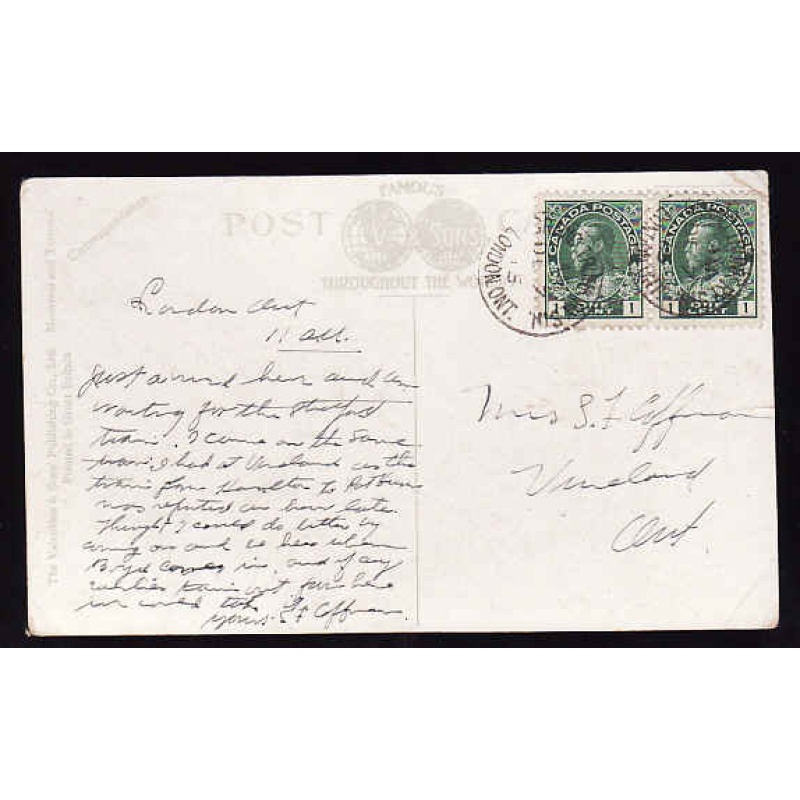 FAMOUS
POST CA
THROUGHOUT THE WO
Correspondence
The Valentine & Sons Publishing Co., Ltd. Montreal and Toronto
Printed in Great Britain
CANADA POSTAGE
1 1
CANADA POSTAGE
1 1
LONDON ONT.
London Ont
11 a.m.
Just arrived here and am
waiting for the Stratford
train. I came on the same
train I had at Vineland as the
train from Hamilton to
was reported an hour late.
Thought I could do better by
coming on and be here when
Boyd comes in, and if any
earlier train out from here
we could take
Yours S F Coffman.
Mrs S F Coffman
Vineland
Ont.